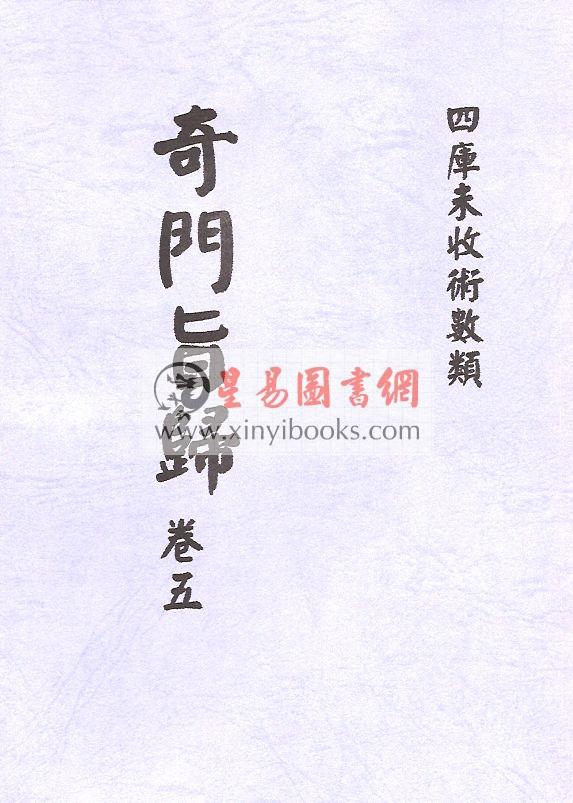 四庫未收術數類
奇門旨歸
卷五
星易圖書網
www.xinyibooks.com